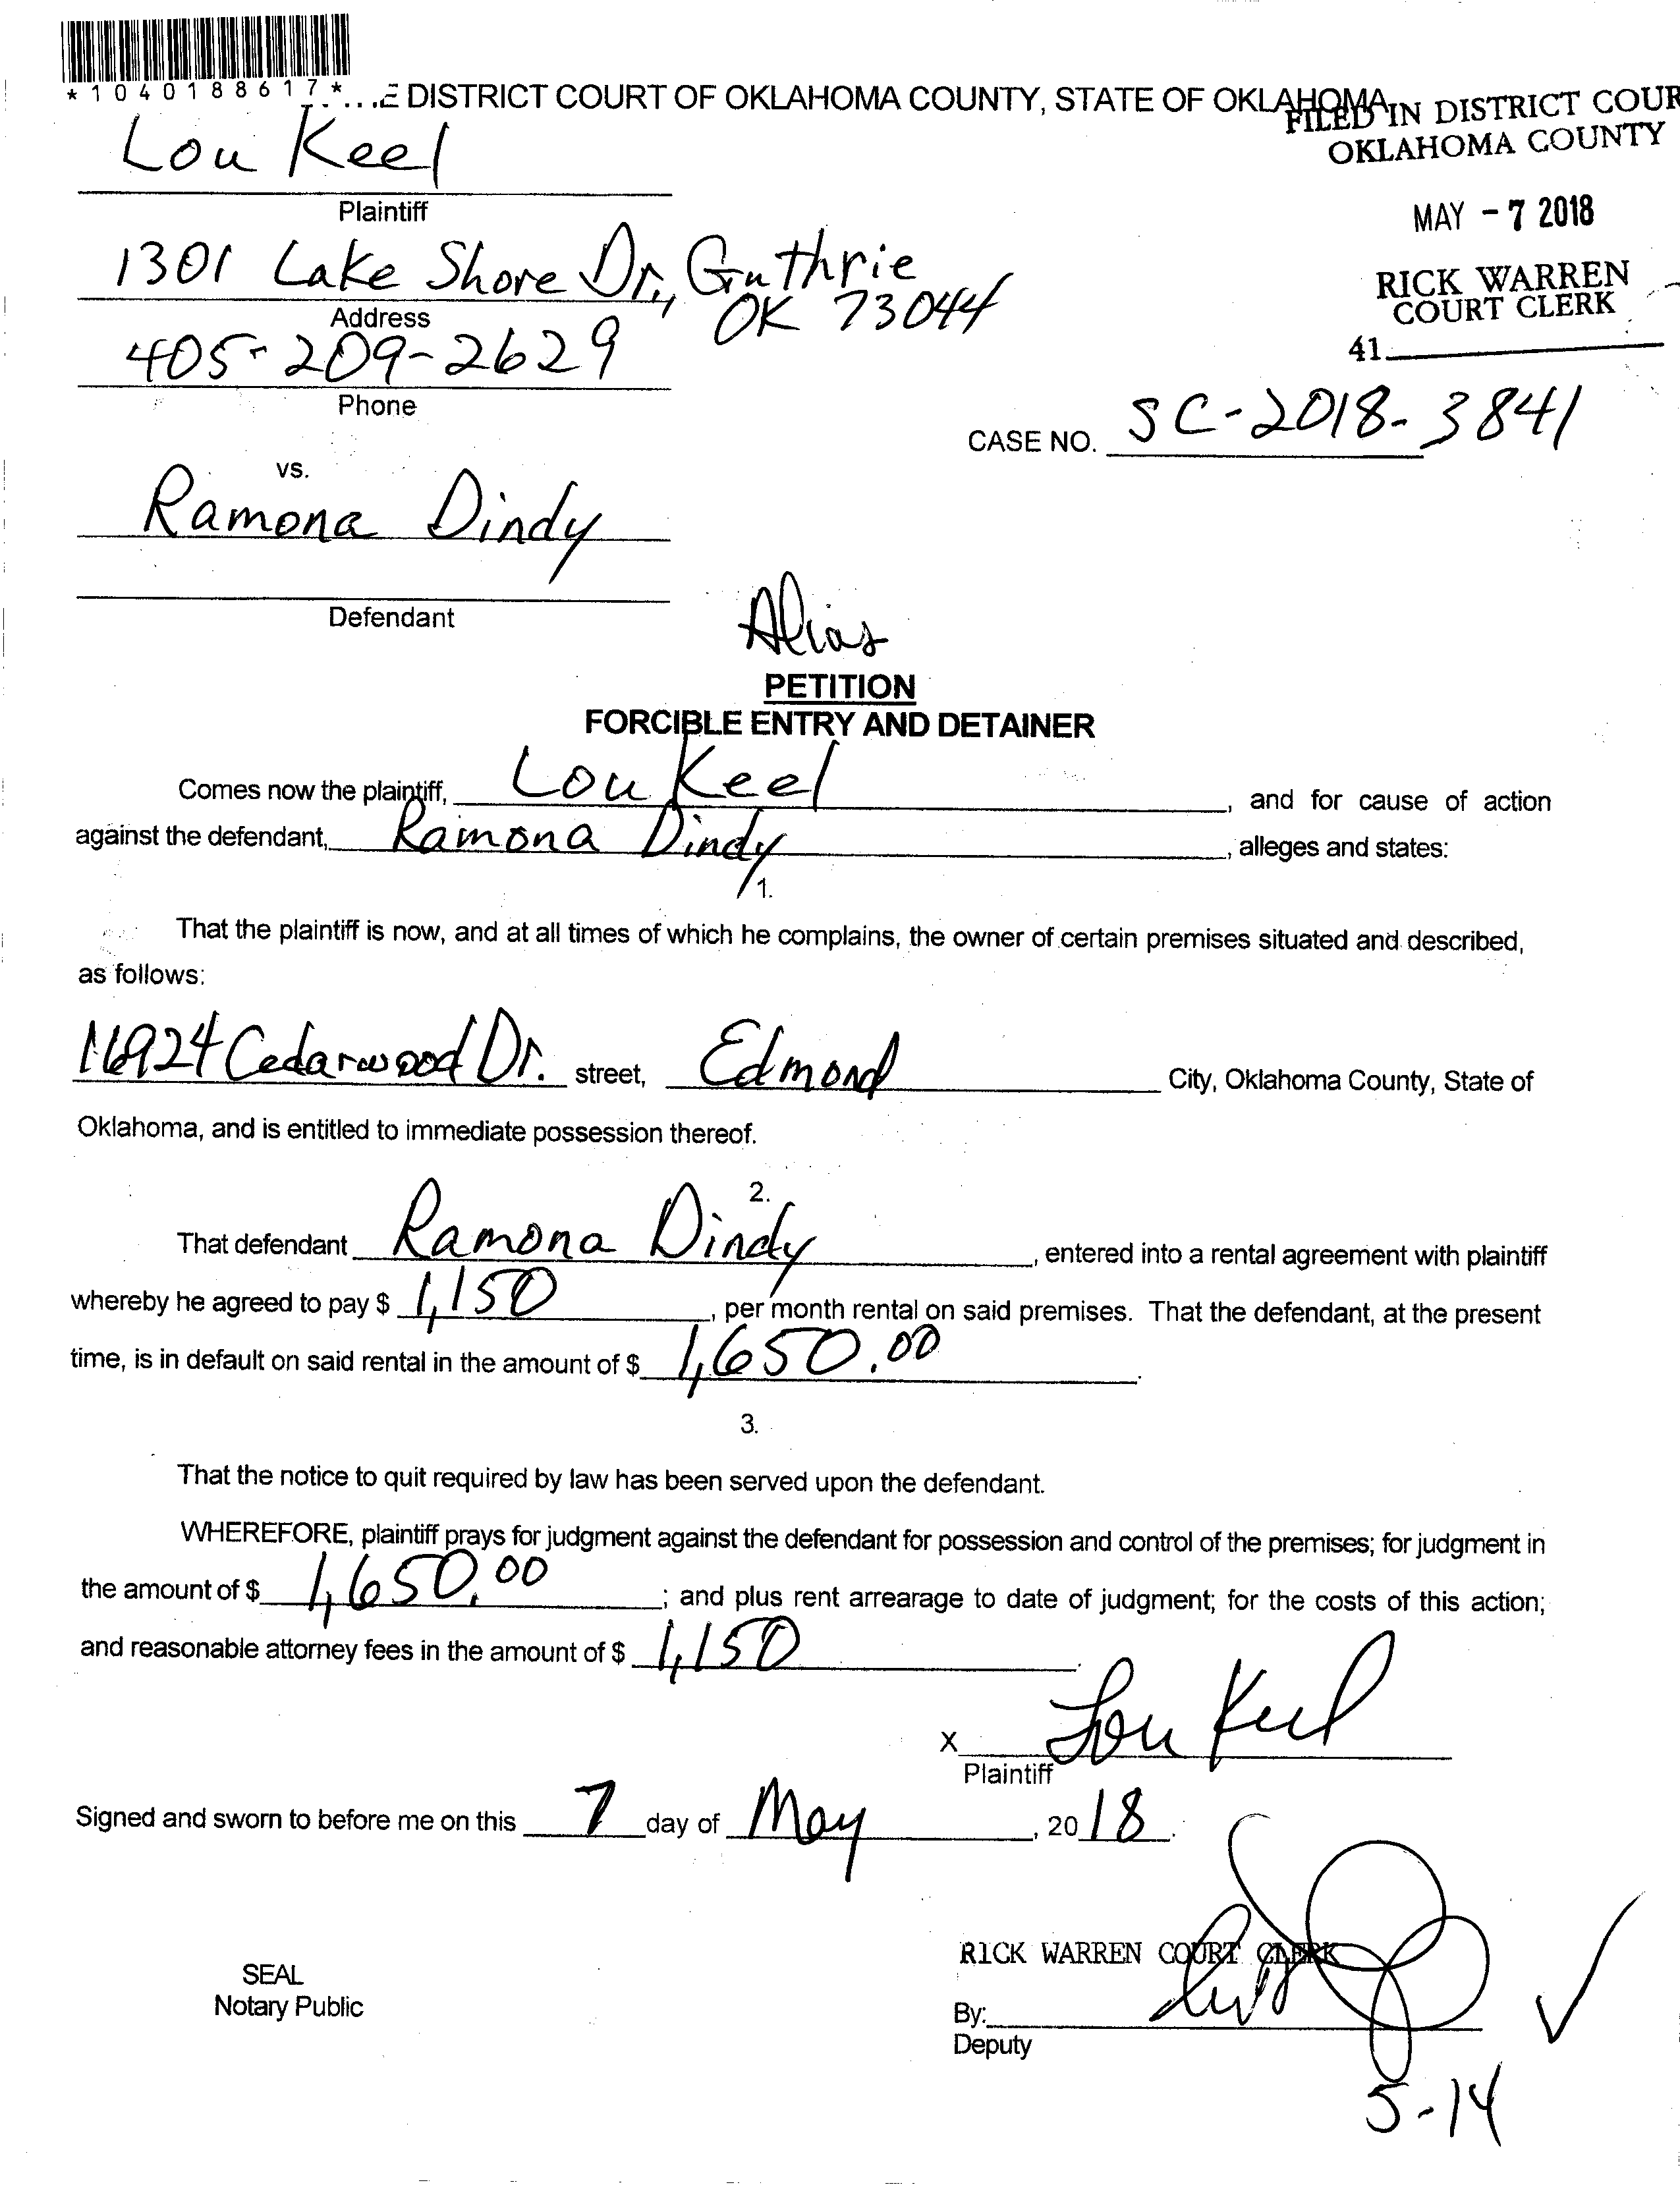 *1040188617*
E DISTRICT COURT OF OKLAHOMA COUNTY, STATE OF OKLAHOMA
FILED IN DISTRICT COUR
OKLAHOMA COUNTY
MAY - 7 2018
RICK WARREN
COURT CLERK
41
Lou Keel
Plaintiff
1301 Lake Shore Dr., Guthrie
OK 73044
Address
405-209-2629
Phone
CASE NO. SC-2018-3841
vs.
Ramona Dindy
Defendant
Alias
PETITION
FORCIBLE ENTRY AND DETAINER
Comes now the plaintiff, Lou Keel, and for cause of action
against the defendant, Ramona Dindy, alleges and states:
1.
That the plaintiff is now, and at all times of which he complains, the owner of certain premises situated and described,
as follows:
16924 Cedarwood Dr. street, Edmond City, Oklahoma County, State of
Oklahoma, and is entitled to immediate possession thereof.
2.
That defendant Ramona Dindy, entered into a rental agreement with plaintiff
whereby he agreed to pay $ 1,150, per month rental on said premises. That the defendant, at the present
time, is in default on said rental in the amount of $ 1,650.00.
3.
That the notice to quit required by law has been served upon the defendant.
WHEREFORE, plaintiff prays for judgment against the defendant for possession and control of the premises; for judgment in
the amount of $ 1,650.00; and plus rent arrearage to date of judgment; for the costs of this action;
and reasonable attorney fees in the amount of $ 1,150.
X Lou Keel
Plaintiff
Signed and sworn to before me on this 7 day of May, 2018.
RICK WARREN COURT CLERK
SEAL
Notary Public
By:
Deputy
5-14